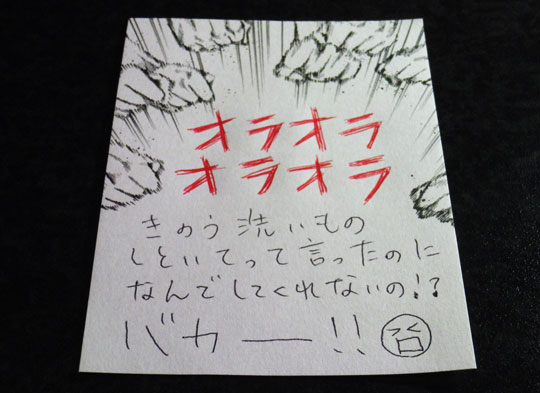 オラオラ
オラオラ
きのう洗いもの
しといてって言ったのに
なんでしてくれないの!?
バカー!!